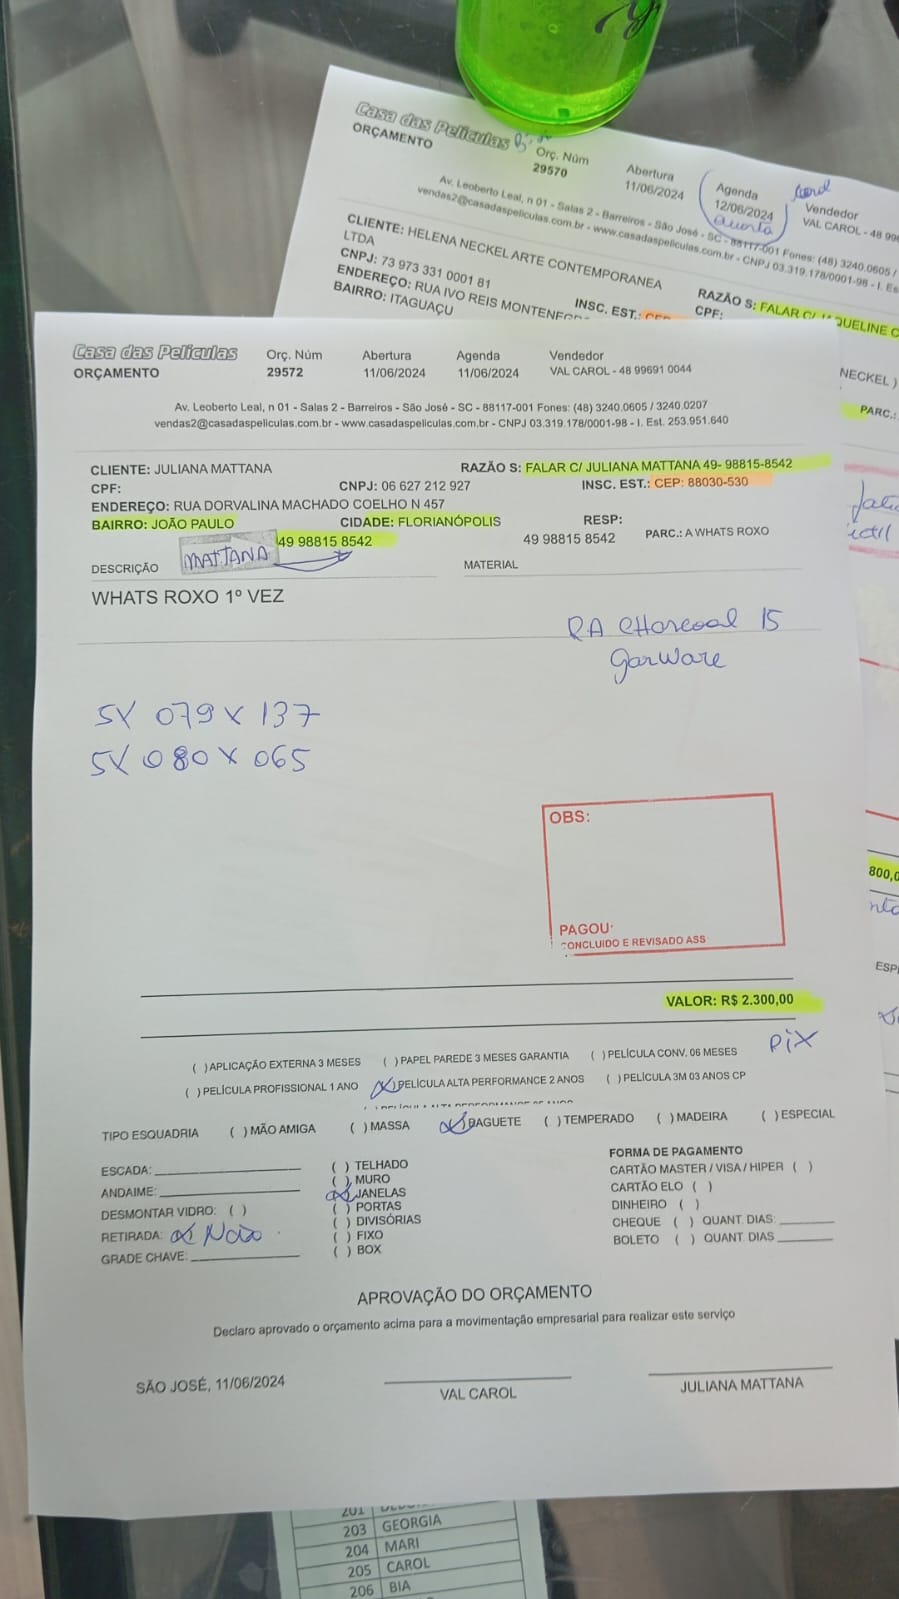 Casa das Películas
ORÇAMENTO
Orç. Núm
29570
Abertura
11/06/2024
Agenda
12/06/2024
Quarta
Carol
Vendedor
VAL CAROL - 48 996
Av. Leoberto Leal, n 01 - Salas 2 - Barreiros - São José - SC - 88117-001 Fones: (48) 3240.0605 /
vendas2@casadaspeliculas.com.br - www.casadaspeliculas.com.br - CNPJ 03.319.178/0001-98 - I. Es
CLIENTE: HELENA NECKEL ARTE CONTEMPORANEA
LTDA
CNPJ: 73 973 331 0001 81
ENDEREÇO: RUA IVO REIS MONTENEGR
BAIRRO: ITAGUAÇU
INSC. EST.: CEP
RAZÃO S: FALAR C/ JAQUELINE C
CPF:
NECKEL )
PARC.:
800,0
ESP
Casa das Películas
ORÇAMENTO
Orç. Núm
29572
Abertura
11/06/2024
Agenda
11/06/2024
Vendedor
VAL CAROL - 48 99691 0044
Av. Leoberto Leal, n 01 - Salas 2 - Barreiros - São José - SC - 88117-001 Fones: (48) 3240.0605 / 3240.0207
vendas2@casadaspeliculas.com.br - www.casadaspeliculas.com.br - CNPJ 03.319.178/0001-98 - I. Est. 253.951.640
CLIENTE: JULIANA MATTANA RAZÃO S: FALAR C/ JULIANA MATTANA 49- 98815-8542
CPF: CNPJ: 06 627 212 927 INSC. EST.: CEP: 88030-530
ENDEREÇO: RUA DORVALINA MACHADO COELHO N 457
BAIRRO: JOÃO PAULO CIDADE: FLORIANÓPOLIS RESP:
49 98815 8542 49 98815 8542 PARC.: A WHATS ROXO
DESCRIÇÃO MATTANA MATERIAL
WHATS ROXO 1º VEZ
RA CHarcoal 15
garware
5X 079 X 137
5X 080 X 065
OBS:
PAGOU:
CONCLUIDO E REVISADO ASS
VALOR: R$ 2.300,00
PiX
( ) APLICAÇÃO EXTERNA 3 MESES ( ) PAPEL PAREDE 3 MESES GARANTIA ( ) PELÍCULA CONV. 06 MESES
( ) PELÍCULA PROFISSIONAL 1 ANO (X) PELÍCULA ALTA PERFORMANCE 2 ANOS ( ) PELÍCULA 3M 03 ANOS CP
TIPO ESQUADRIA ( ) MÃO AMIGA ( ) MASSA (X) BAGUETE ( ) TEMPERADO ( ) MADEIRA ( ) ESPECIAL
ESCADA:
ANDAIME:
DESMONTAR VIDRO: ( )
RETIRADA: X Não
GRADE CHAVE:
( ) TELHADO
( ) MURO
(X) JANELAS
( ) PORTAS
( ) DIVISÓRIAS
( ) FIXO
( ) BOX
FORMA DE PAGAMENTO
CARTÃO MASTER / VISA / HIPER ( )
CARTÃO ELO ( )
DINHEIRO ( )
CHEQUE ( ) QUANT. DIAS:
BOLETO ( ) QUANT. DIAS
APROVAÇÃO DO ORÇAMENTO
Declaro aprovado o orçamento acima para a movimentação empresarial para realizar este serviço
SÃO JOSÉ, 11/06/2024
VAL CAROL
JULIANA MATTANA
201
203 GEORGIA
204 MARI
205 CAROL
206 BIA